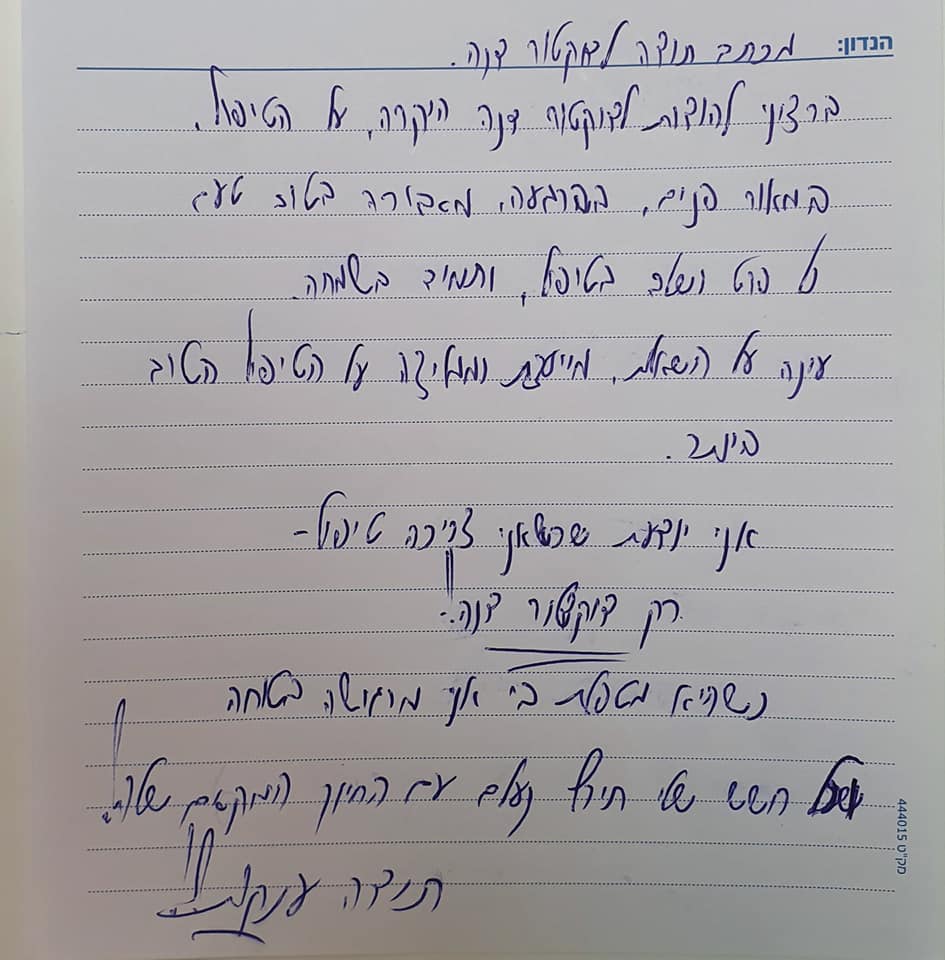 הנדון: מכתב תודה לדוקטור דנה.
ברצוני להודות לדוקטור דנה היקרה, על הטיפול.
במאור פנים, בהרגעה, מאבורה בטוב טעם
כל פרט ושלב בטיפול, ותמיד בשמחה.
עונה על השאלות, מייעצת וממליצה על הטיפול הטוב
ביותר.
אני יודעת שכשאני צריכה טיפול -
רק דוקטור דנה!.
כשהיא מטפלת בי אני מרגישה בטוחה
וכל חשש שלי תמיד נעלם עם החיוך המקסים שלה!.
תודה ענקית!!
מק"ט 444015